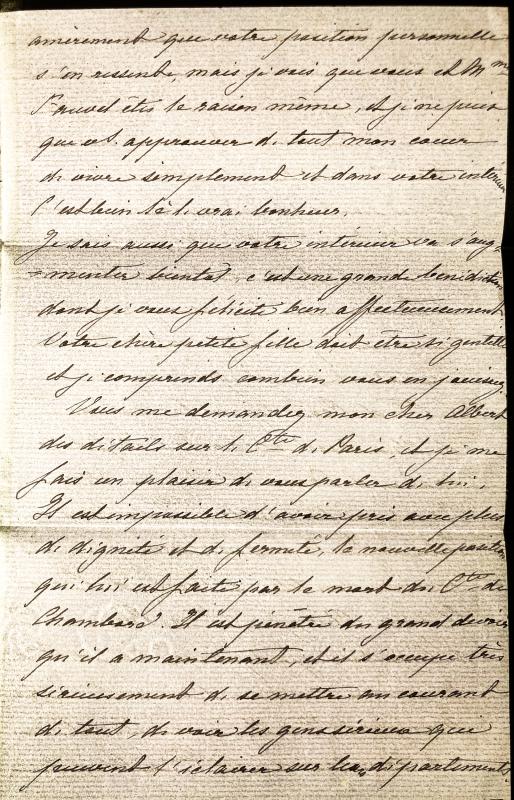 amèrement que votre position personnelle
s'en ressente, mais je vois que vous et Mme
Fauvel êtes la raison même, et je ne puis
que vs. approuver de tout mon cœur
de vivre simplement et dans votre intérieur
C'est bien là le vrai bonheur.
Je sais aussi que votre intérieur va s'aug-
=menter bientôt, c'est une grande bénédiction
dont je vous félicite bien affectueusement
Votre chère petite fille doit être si gentille
et je comprends combien vous en jouissez.
Vous me demandez mon cher Albert
des détails sur le Cte de Paris, et je me
fais un plaisir de vous parler de lui.
Il est impossible d'avoir pris avec plus
de dignité et de fermeté, la nouvelle position
qui lui est faite par la mort du Cte de
Chambord. Il est pénétré du grand devoir
qu'il a maintenant, et il s'occupe très
sérieusement de se mettre au courant
de tout, de voir les gens sérieux qui
peuvent l'éclairer sur les départements,